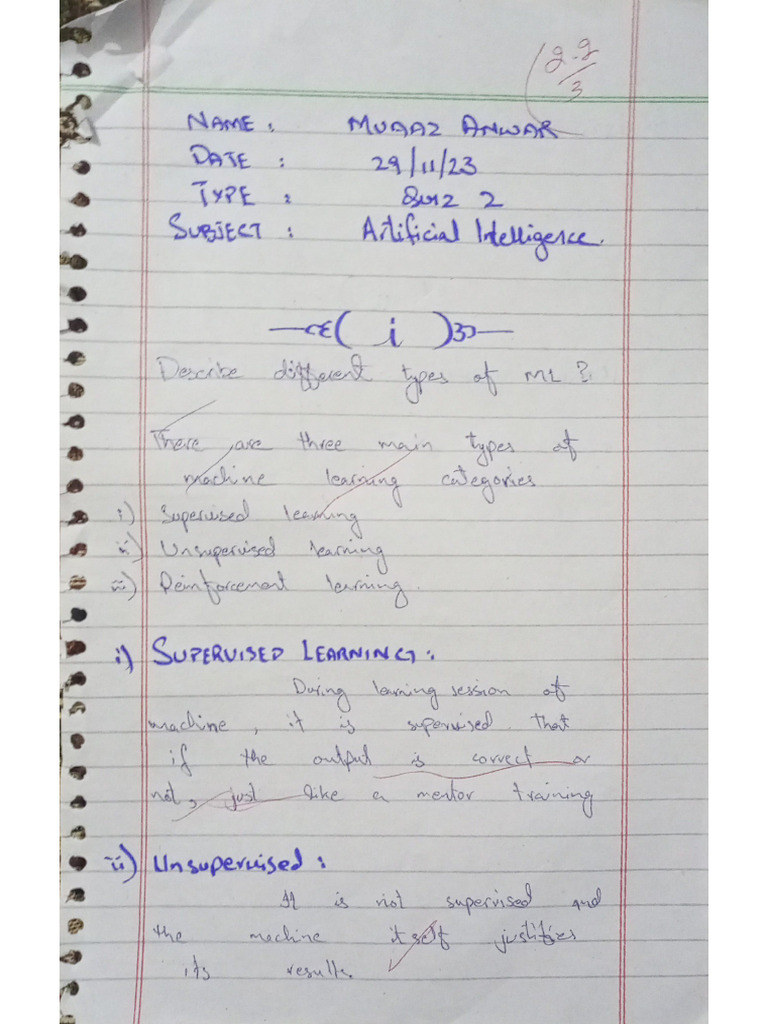 2.2/3
NAME : MUAAZ ANWAR
DATE : 29/11/23
TYPE : Quiz 2
SUBJECT : Artificial Intelligence.
i
Describe different types of ML ?
There are three main types of
machine learning categories
i) Supervised learning
ii) Unsupervised learning
iii) Reinforcement learning.
i) SUPERVISED LEARNING :
During learning session of
machine, it is supervised that
if the output is correct or
not, just like a mentor training
ii) Unsupervised :
It is not supervised and
the machine itself justifies
its results.